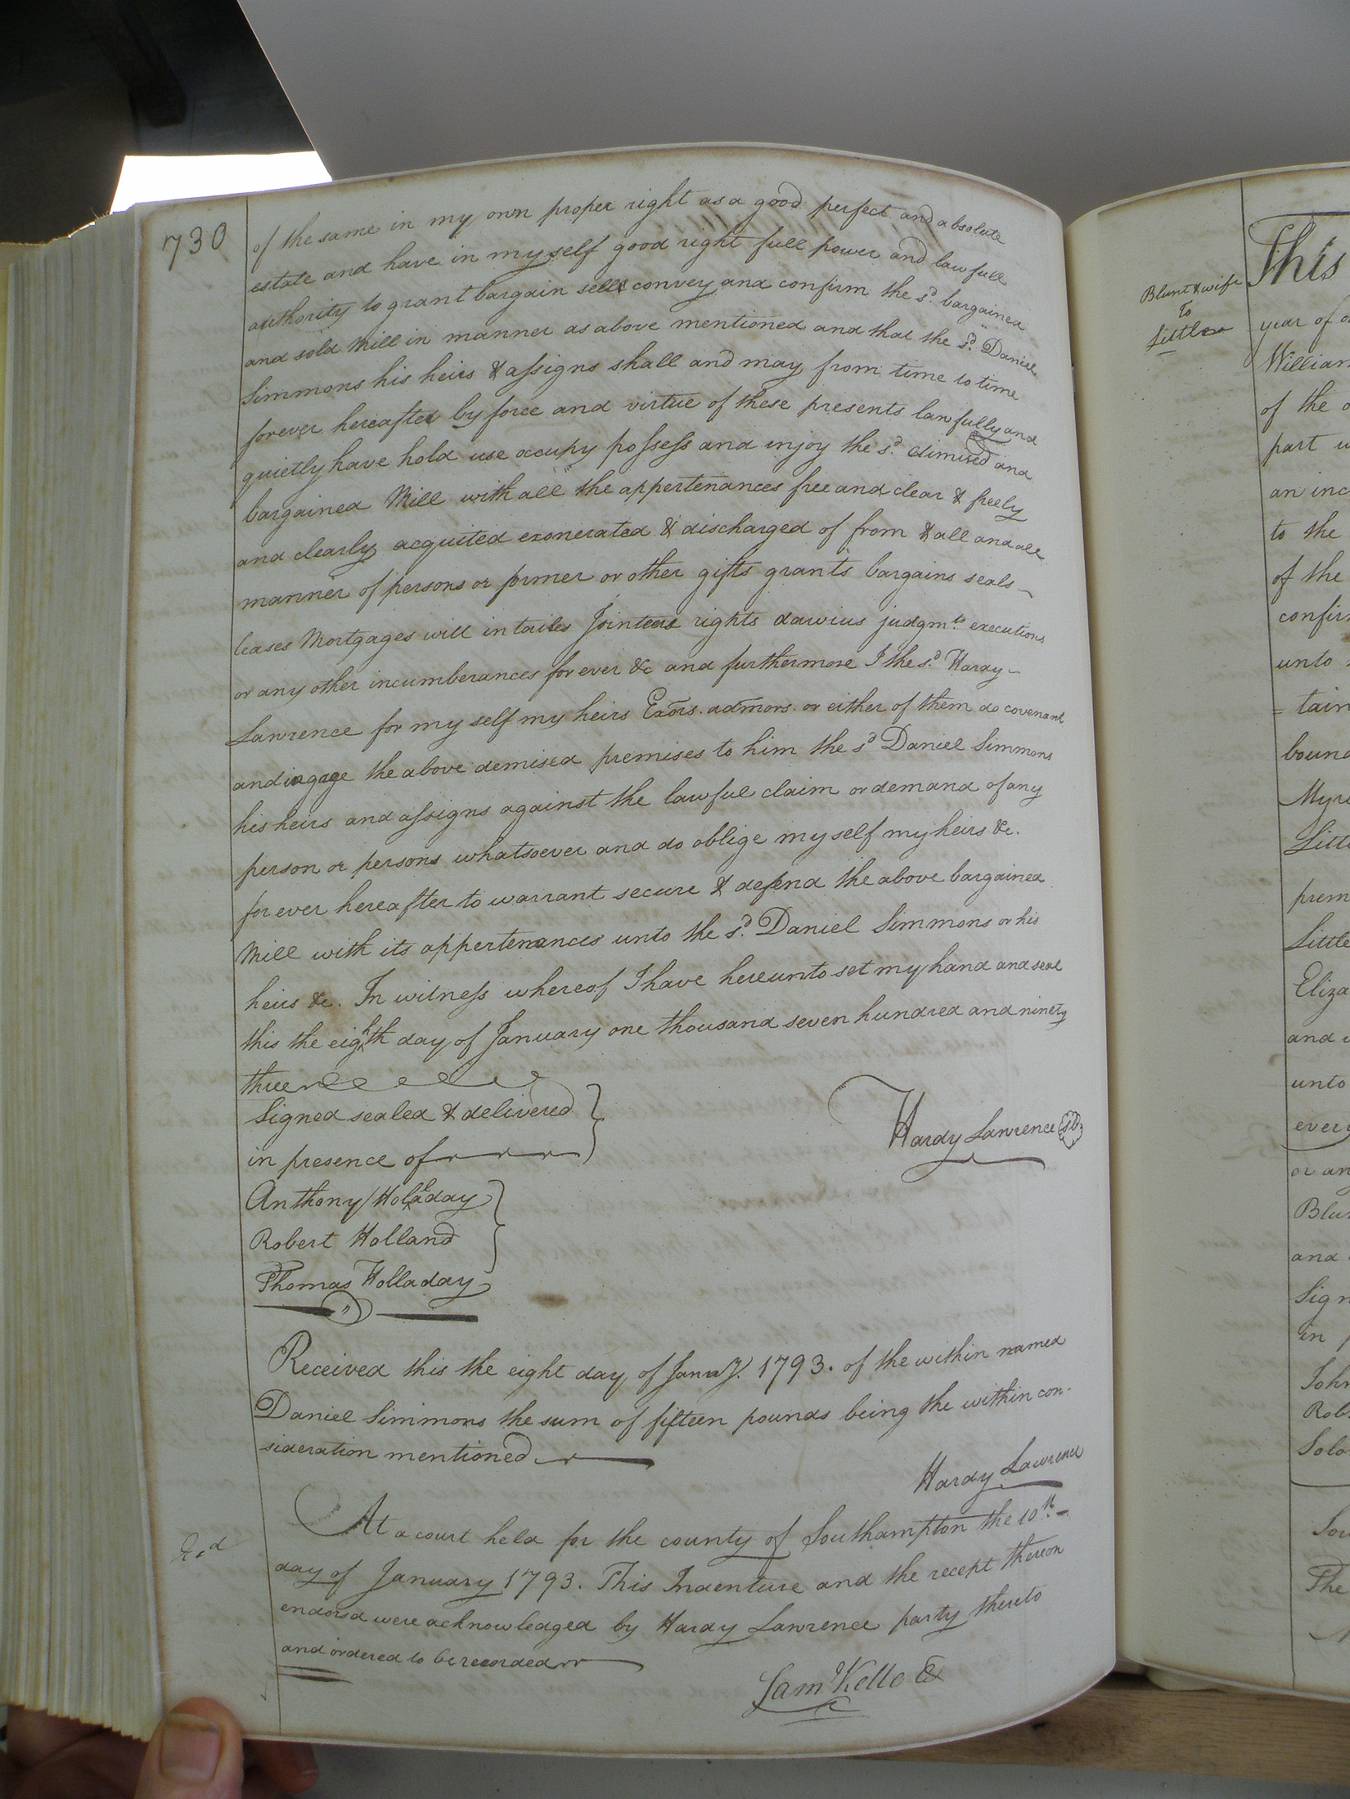 730
of the same in my own proper right as a good perfect and absolute
estate and have in my self good right full power and lawfull
authority to grant bargain sell & convey and confirm the sd. bargained
and sold Mill in manner as above mentioned and that the sd. Daniel
Simmons his heirs & assigns shall and may from time to time
forever hereafter by force and virtue of these presents lawfully and
quietly have hold use occupy possess and injoy the sd. dimised and
bargained Mill with all the appertenances free and clear & freely
and clearly acquited exonerated & discharged of from & all and all
manner of persons or former or other gifts grants bargains seals
leases Mortgages will intailes Jointers rights judgmts. executions
or any other incumberances for ever &c and furthermore I the sd. Hardy
Lawrence for my self my heirs Exors. admors. or either of them do covenant
and ingage the above demised premises to him the sd Daniel Simmons
his heirs and assigns against the lawful claim or demand of any
person or persons whatsoever and do oblige my self my heirs &c.
for ever hereafter to warrant secure & defend the above bargained
Mill with its appertenances unto the sd. Daniel Simmons or his
heirs &c. In witness whereof I have hereunto set my hand and seal
this the eighth day of January one thousand seven hundred and ninety
three
Signed sealed & delivered
in presence of
Hardy Lawrence
Anthony Holladay
Robert Holland
Thomas Holladay
Received this the eight day of Janay. 1793. of the within named
Daniel Simmons the sum of fifteen pounds being the within con-
sideration mentioned
Hardy Lawrence
At a court held for the county of Southampton the 10th
day of January 1793. This Indenture and the recept thereon
endorsd were acknowledged by Hardy Lawrence party thereto
and ordered to be recorded
Saml Kello
Blunt & wife
To
Little
This
year of
William
of the
part
an inc
to the
of the
confir
unto
= tain
bound
Littl
prem
Little
Eliza
and
unto
every
or an
Blun
and
Sign
in p
John
Rob
Solo
The